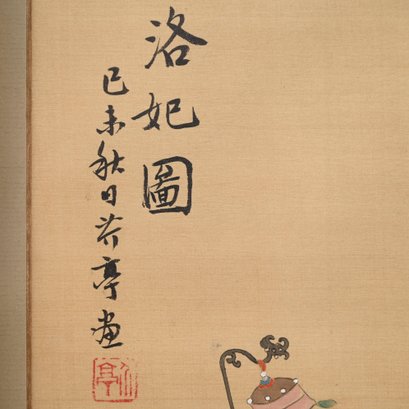 洛妃圖
己未秋日芥亭畫